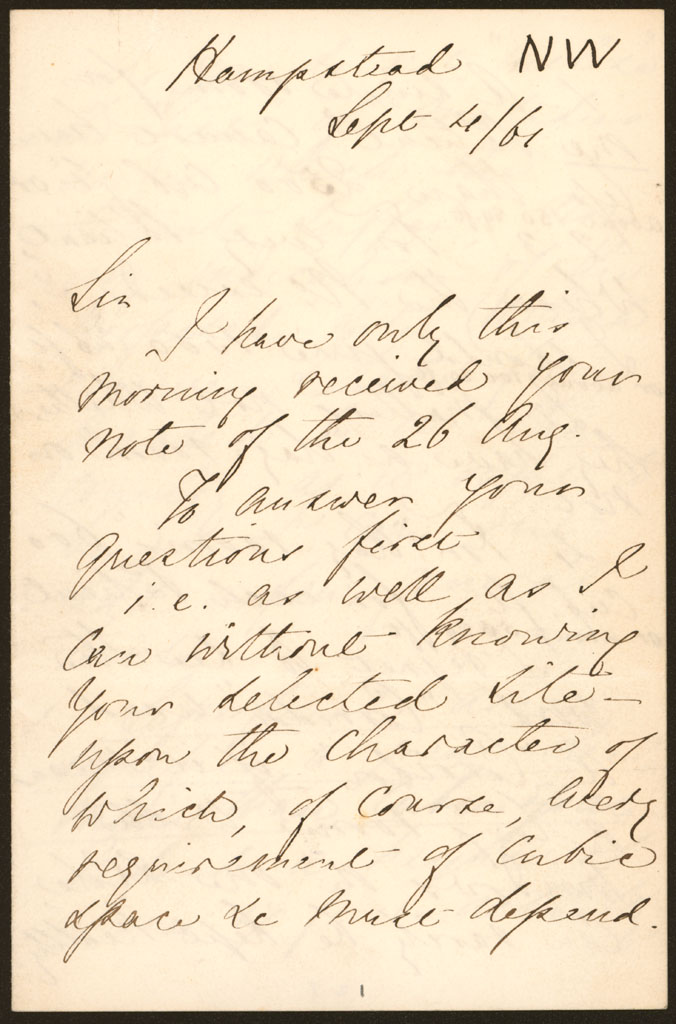 Hampstead NW
Sept 4/61
Sir
I have only this
morning received your
note of the 26 Aug.
To answer your
questions first
i.e. as well as I
can without knowing
your selected site—
upon the character of
which, of course, every
requirement of cubic
space &c must depend.
1